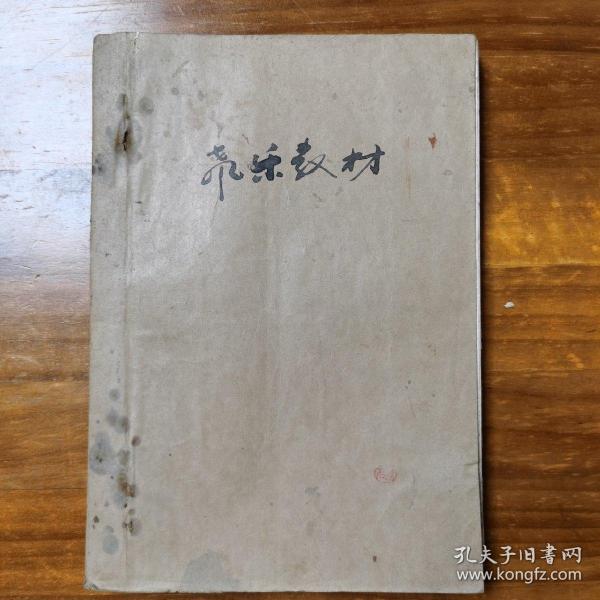 乐教材
孔夫子旧書网
www.kongfz.com